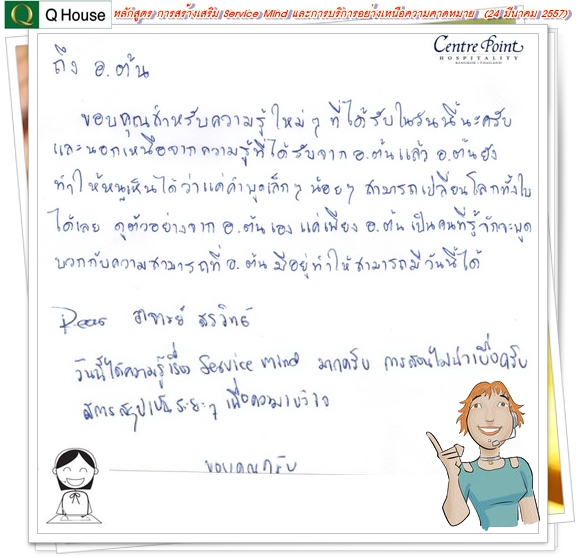 Q Q House หลักสูตร การสร้างเสริม Service Mind และการบริการอย่างเหนือความคาดหมาย (24 มีนาคม 2557)
Centre Point
HOSPITALITY
BANGKOK • THAILAND
ถึง อ.ต้น
ขอบคุณสำหรับความรู้ใหม่ๆ ที่ได้รับในวันนี้นะครับ
และนอกเหนือจากความรู้ที่ได้รับจาก อ.ต้นแล้ว อ.ต้นยัง
ทำให้หนูเห็นได้ว่าแค่คำพูดเล็กๆ น้อยๆ สามารถเปลี่ยนโลกทั้งใบ
ได้เลย ดูตัวอย่างจาก อ.ต้นเอง แค่เพียง อ.ต้น เป็นคนที่รู้จักจะพูด
บวกกับความสามารถที่ อ.ต้น มีอยู่ทำให้สามารถมีวันนี้ได้
Dear อาจารย์ สรวิทย์
วันนี้ได้ความรู้เรื่อง Service mind มากครับ การสอนไม่น่าเบื่อครับ
มีการสรุปเป็นระยะๆ เพื่อความเข้าใจ
ขอบคุณครับ